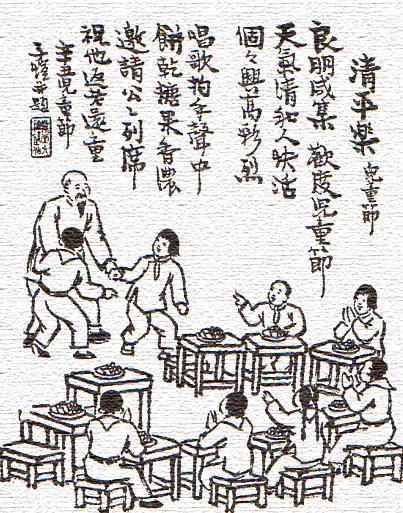 清平樂 兒童節
良朋咸集 歡度兒童節
天氣清和人快活
個々興高彩烈
唱歌拍手聲中
餅乾糖果香濃
邀請公公列席
祝他返老還童
辛丑兒童節
子愷並題